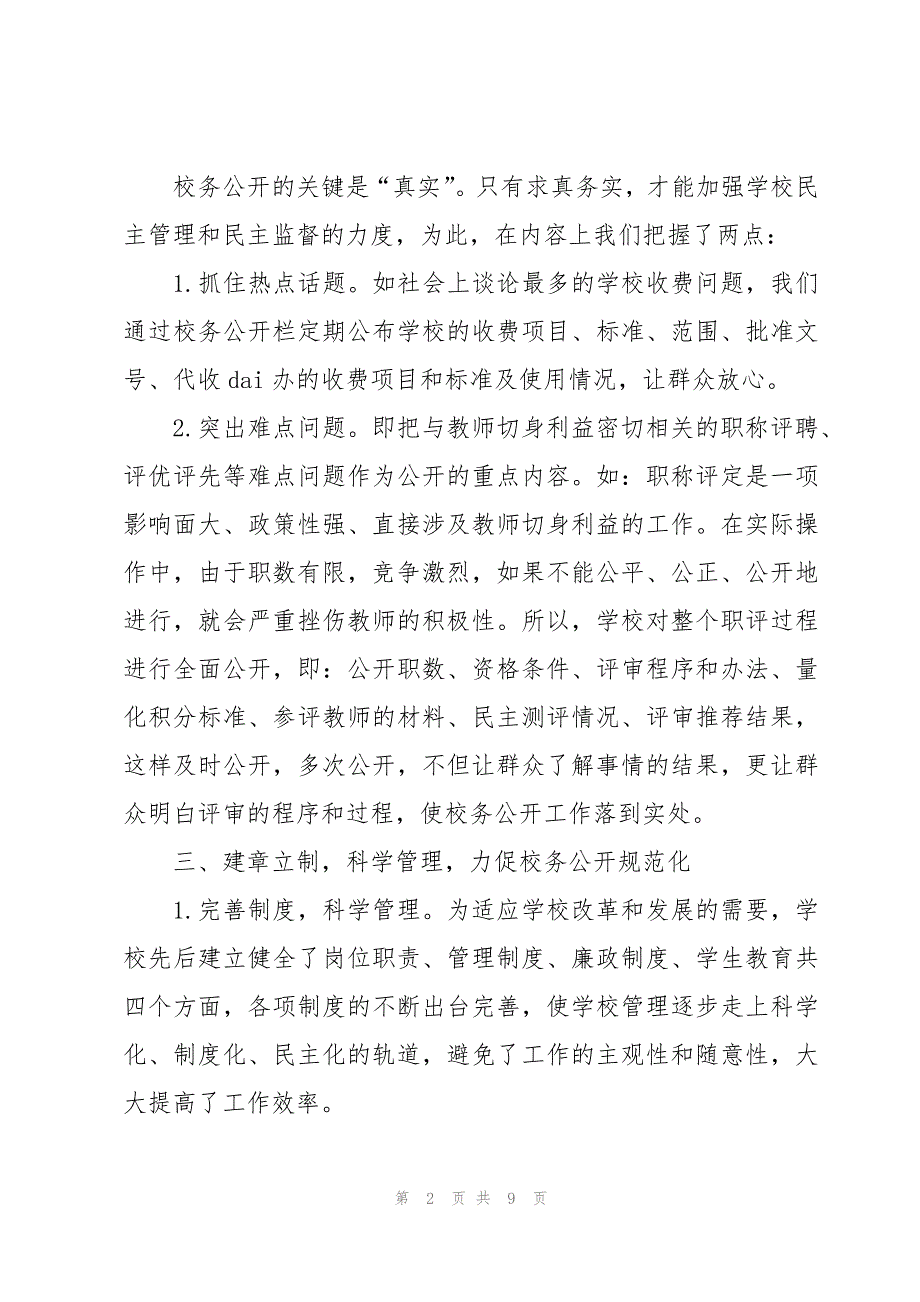 校务公开的关键是“真实”。只有求真务实，才能加强学校民
主管理和民主监督的力度，为此，在内容上我们把握了两点：
1.抓住热点话题。如社会上谈论最多的学校收费问题，我们
通过校务公开栏定期公布学校的收费项目、标准、范围、批准文
号、代收 dai 办的收费项目和标准及使用情况，让群众放心。
2.突出难点问题。即把与教师切身利益密切相关的职称评聘、
评优评先等难点问题作为公开的重点内容。如：职称评定是一项
影响面大、政策性强、直接涉及教师切身利益的工作。在实际操
作中，由于职数有限，竞争激烈，如果不能公平、公正、公开地
进行，就会严重挫伤教师的积极性。所以，学校对整个职评过程
进行全面公开，即：公开职数、资格条件、评审程序和办法、量
化积分标准、参评教师的材料、民主测评情况、评审推荐结果，
这样及时公开，多次公开，不但让群众了解事情的结果，更让群
众明白评审的程序和过程，使校务公开工作落到实处。
三、建章立制，科学管理，力促校务公开规范化
1.完善制度，科学管理。为适应学校改革和发展的需要，学
校先后建立健全了岗位职责、管理制度、廉政制度、学生教育共
四个方面，各项制度的不断出台完善，使学校管理逐步走上科学
化、制度化、民主化的轨道，避免了工作的主观性和随意性，大
大提高了工作效率。
第 2 页 共 9 页